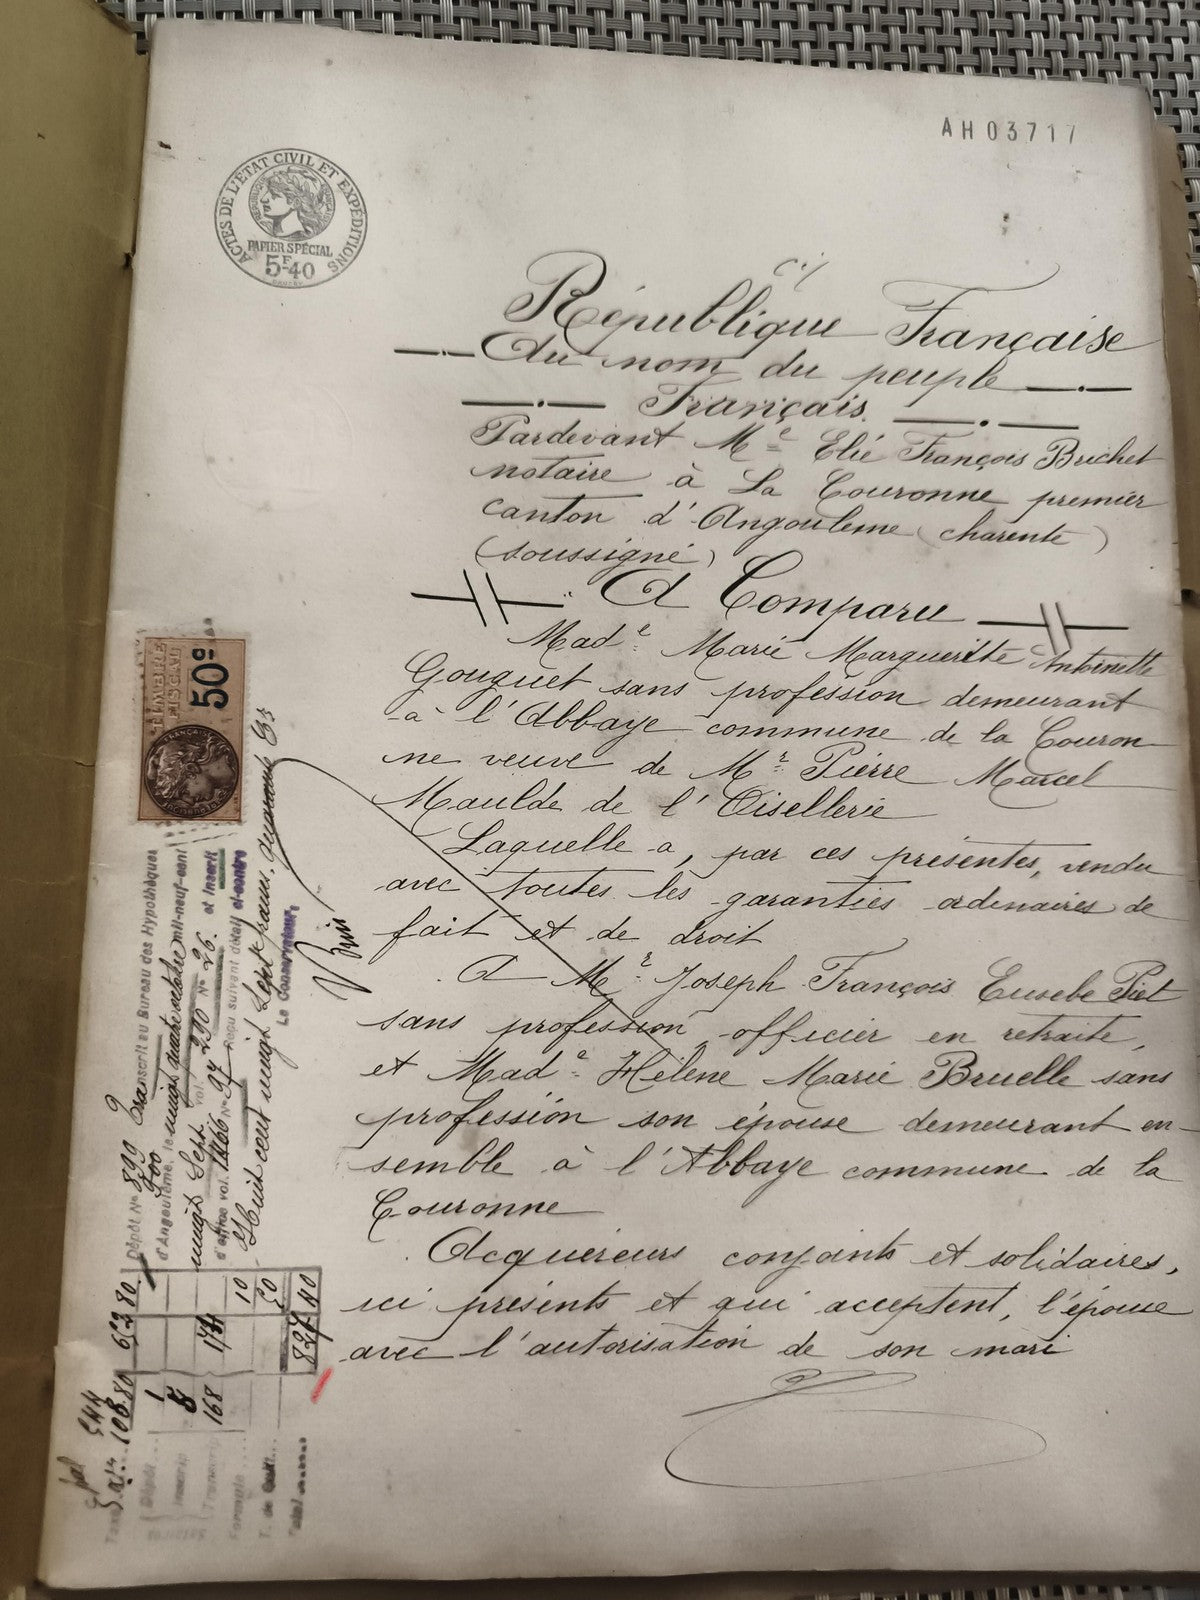 AH03717
ACTES DE L'ÉTAT CIVIL ET EXPÉDITIONS
PAPIER SPÉCIAL
5F40
République Française
Au nom du peuple
Français.
Pardevant Me Elie François Brichet
notaire à La Couronne premier
canton d'Angouleme (charente)
(soussigné)
A Comparu
Made Marie Marguerite Antoinette
Gouguet sans profession demeurant
à l'Abbaye commune de la Couron
ne veuve de Mr Pierre Marcel
Maulde de l'Oisellerie
Laquelle a, par ces présentes, vendu
avec toutes les garanties ordinaires de
fait et de droit
A Mr Joseph François Eusebe Piet
sans profession officier en retraite,
et Made Hélène Marie Bruelle sans
profession son épouse demeurant en-
semble à l'Abbaye commune de la
Couronne
Acquereurs conjoints et solidaires,
ici présents et qui acceptent, l'épouse
avec l'autorisation de son mari
TIMBRE
FISCAL
50c
Dépôt No 899 Transcrit au Bureau des Hypothèques
d'Angoulême, le vingt quatre mil-neuf-cent
vingt Sept vol. 290 No 26. et Inscrit
d'office vol. No 97 Reçu suivant détail ci-contre
Huit cent vingt Sept francs, quarante
Le Conservateur,
108 80 632 80
Dépôt 1
8
168 174
Formule 10
T. de 50
Total 827 40